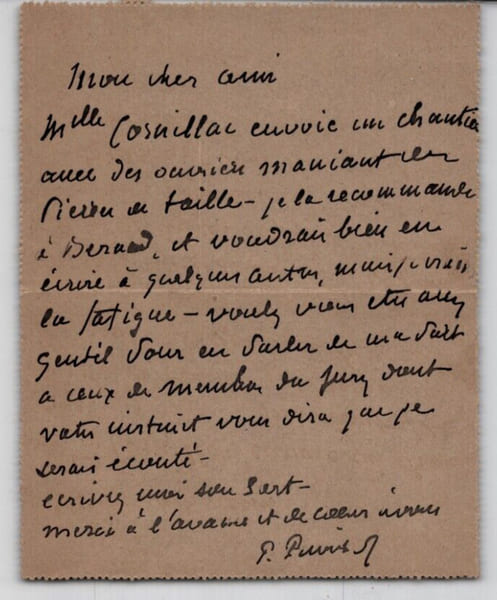 Mon cher ami
Mlle Cornillac envoie un chantier
avec des ouvriers maniant des
Pierres de taille – je la recommande
à Beraud, et voudrais bien en
écrire à quelques autres, mais je crains
la fatigue – voulez vous être assez
gentil pour en parler de ma part
a ceux des membres du Jury dont
votre instinct vous dira que je
serais écouté –
ecrivez moi son sort –
merci à l'avance et de cœur à vous
P. Puvis